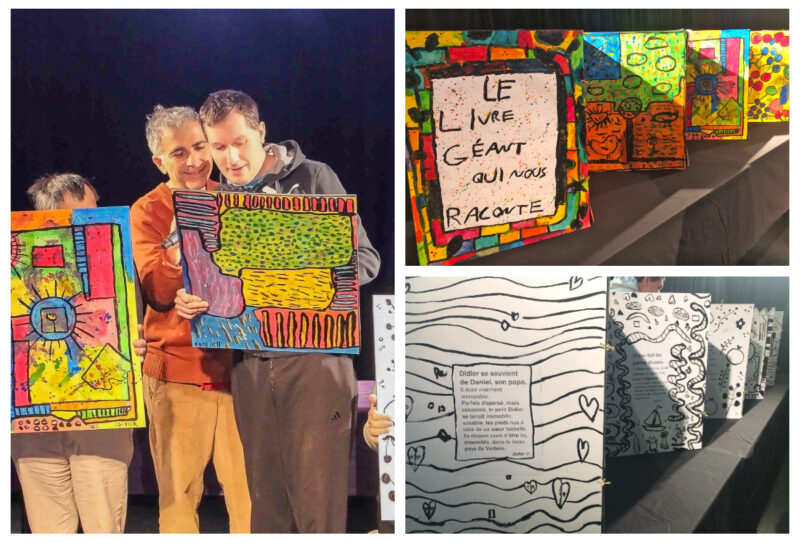 LE
LIVRE
GÉANT
QUI NOUS
RACONTE
Didier se souvient
de Daniel, son papa.
Il était vraiment
incroyable.
Parfois dispersé, mais
consacré, le petit Didier
se tenait immobile,
volubile, les pieds nus à
côté de sa sœur Isabelle.
Ils étaient ravis d'être ici,
ensemble, dans le beau
pays du Verbois.
Didier P.